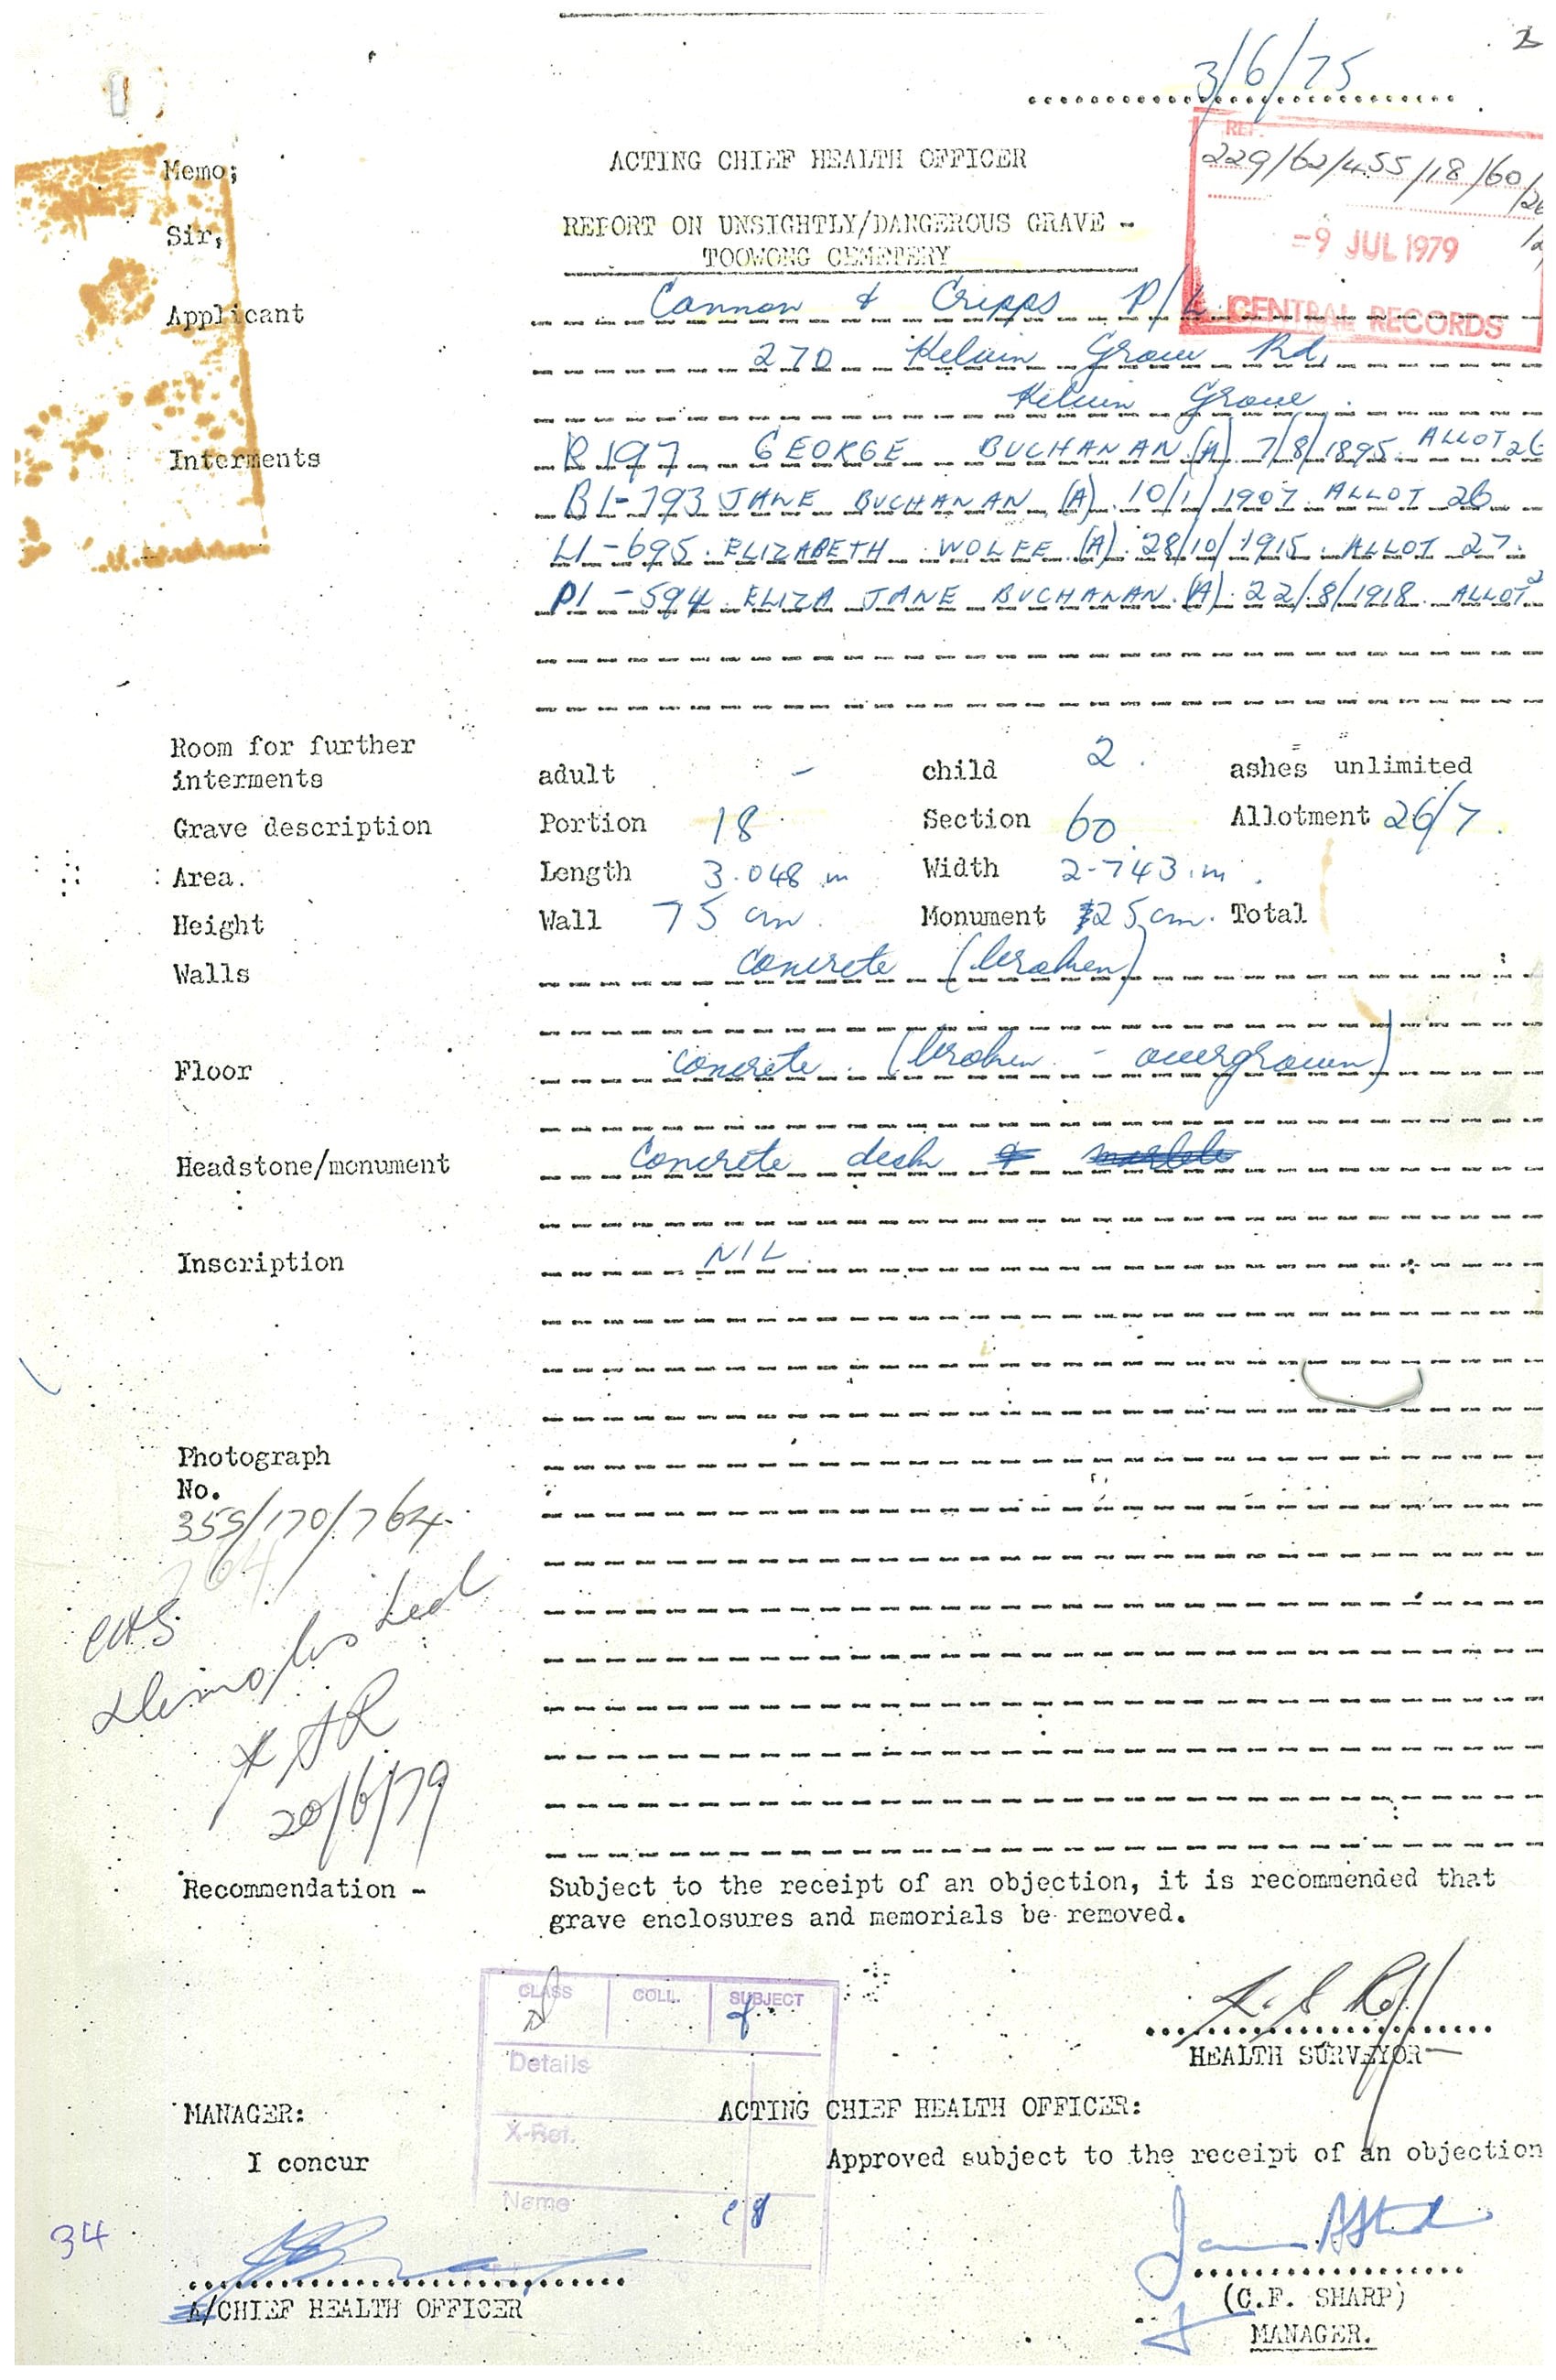 3/6/75
REF.
229/62/455/18/60/26
-9 JUL 1979
CENTRAL RECORDS
Memo;
ACTING CHIEF HEALTH OFFICER
Sir,
REPORT ON UNSIGHTLY/DANGEROUS GRAVE -
TOOWONG CEMETERY
Applicant Cannon & Cripps P/L
270 Kelvin Grove Rd,
Kelvin Grove.
Interments R 197 GEORGE BUCHANAN (A) 7/8/1895 ALLOT 26
B1-793 JANE BUCHANAN (A) 10/1/1907 ALLOT 26
L1-695. ELIZABETH WOLFE (A). 28/10/1915. ALLOT 27.
P1-594. ELIZA JANE BUCHANAN. (A). 22/8/1918. ALLOT 2
Room for further
interments adult - child 2. ashes unlimited
Grave description Portion 18 Section 60 Allotment 26/7.
Area. Length 3.048 m Width 2.743 m.
Height Wall 75 cm. Monument 125 cm. Total
Walls concrete (broken)
Floor concrete (broken - overgrown)
Headstone/monument Concrete desk
Inscription NIL.
Photograph
No.
355/170/764
764
Demolished
20/6/79
Recommendation - Subject to the receipt of an objection, it is recommended that
grave enclosures and memorials be removed.
CLASS COLL. SUBJECT
Details
X-Ref.
Name
HEALTH SURVEYOR
MANAGER: ACTING CHIEF HEALTH OFFICER:
I concur Approved subject to the receipt of an objection
34
A/CHIEF HEALTH OFFICER
(C.F. SHARP)
MANAGER.